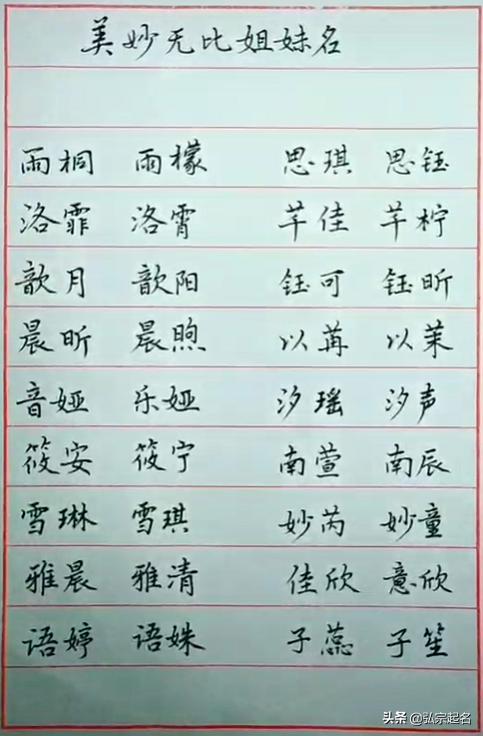 美妙无比姐妹名
雨桐 雨檬 思琪 思钰
洛霏 洛霄 芊佳 芊柠
歆月 歆阳 钰可 钰昕
晨昕 晨煦 以苒 以茉
音娅 乐娅 汐瑶 汐声
筱安 筱宁 南萱 南辰
雪琳 雪琪 妙芮 妙童
雅晨 雅清 佳欣 意欣
语婷 语姝 子蕊 子笙
头条 @弘宗起名